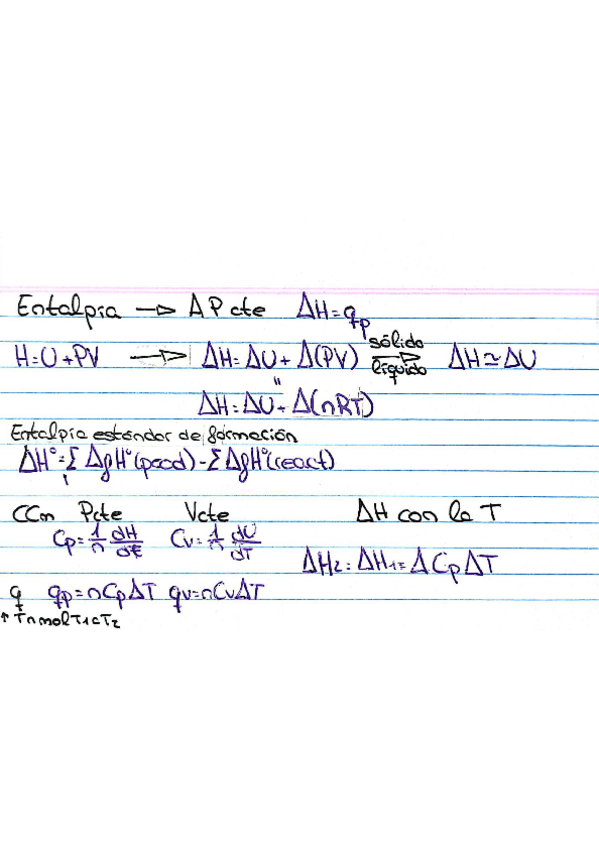 Entalpía → A P cte ΔH = qp
H = U + PV → ΔH = ΔU + Δ(PV) sólido líquido → ΔH ≃ ΔU
"
ΔH = ΔU + Δ(nRT)
Entalpía estándar de formación
ΔH° = Σ ΔfH°(prod) - Σ ΔfH°(react)
CCm Pcte Vcte ΔH con la T
Cp = 1/n dH/dt Cv = 1/n dU/dT
ΔH2 = ΔH1 = Δ Cp ΔT
q qp = nCpΔT qv = nCvΔT
↑ T n mol T1 a T2